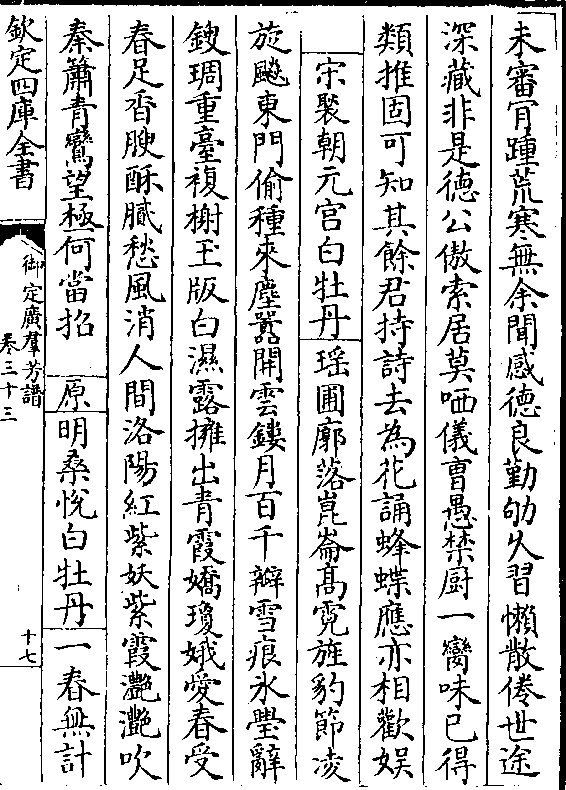 未審肎踵荒寒無余聞感德良勤劬久習懶散倦世途
深藏非是德公傲索居莫哂儀曹愚禁厨一臠味已得
類推固可知其餘君持詩去為花誦蜂蝶應亦相歡娱
宋褧朝元宫白牡丹 瑶圃廓落崑崙髙霓旌豹節凌
旋飈東門偷種來塵囂開雲鏤月百千瓣雪痕氷璺辭
鎪琱重臺複榭玉版白濕露擁出青霞嬌瓊娥愛春受
春足香腴酥膩愁風消人間洛陽紅紫妖紫霞灔灔吹
秦簫青鸞望極何當招 原 明桑恱白牡丹 一春無計
欽定四庫全書
御定廣羣芳譜
卷三十三
十七